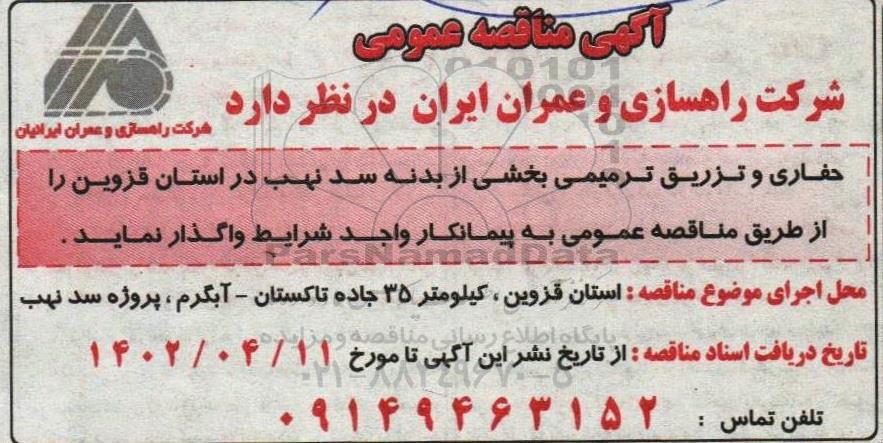 آگهی مناقصه عمومی
شرکت راهسازی و عمران ایران در نظر دارد
شرکت راهسازی و عمران ایرانیان
حفاری و تزریق ترمیمی بخشی از بدنه سد نهب در استان قزوین را
از طریق مناقصه عمومی به پیمانکار واجد شرایط واگذار نماید .
محل اجرای موضوع مناقصه : استان قزوین ، کیلومتر ۳۵ جاده تاکستان - آبگرم ، پروژه سد نهب
تاریخ دریافت اسناد مناقصه : از تاریخ نشر این آگهی تا مورخ ۱۴۰۲/۰۴/۱۱
تلفن تماس : ۰۹۱۴۹۴۶۳۱۵۲
ParsNamadData
پایگاه اطلاع رسانی مناقصه و مزایده
۰۲۱-۸۸۳۴۹۶۷۰-۵